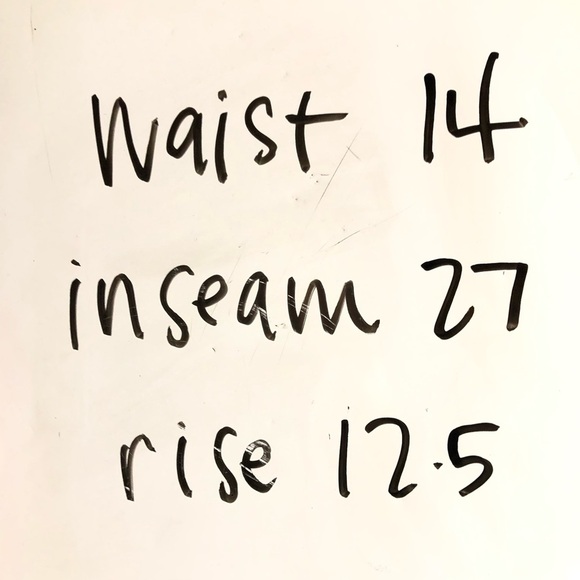 Waist 14
inseam 27
rise 12.5